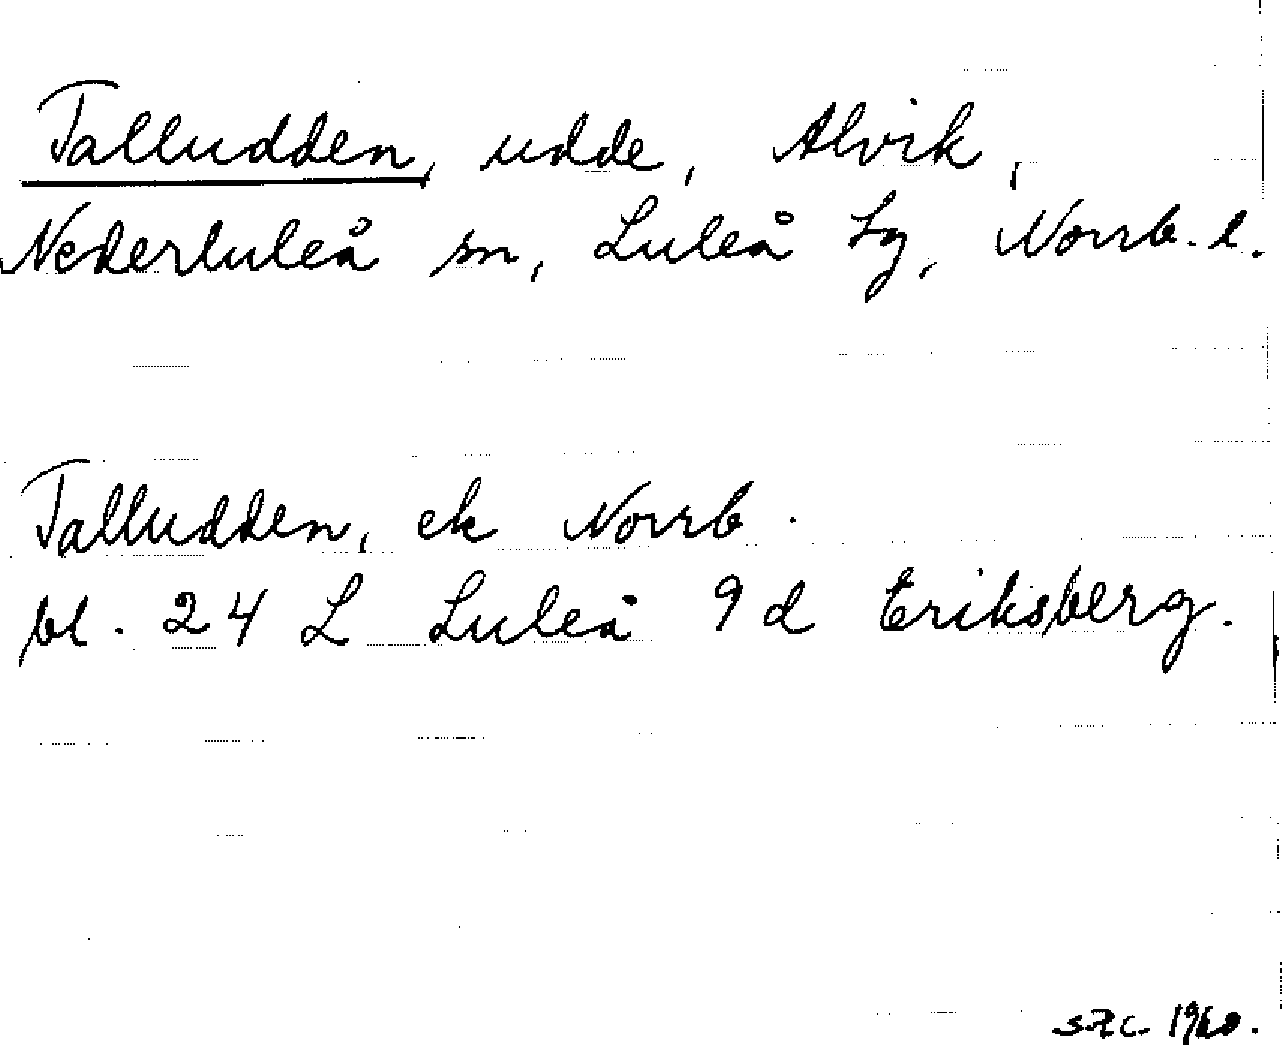 Talludden, udde, Alvik,
Nederluleå sn, Luleå tg, Norrb. l.
Talludden, ek Norrb.
bl. 24 L Luleå 9 d Eriksberg.
1960.